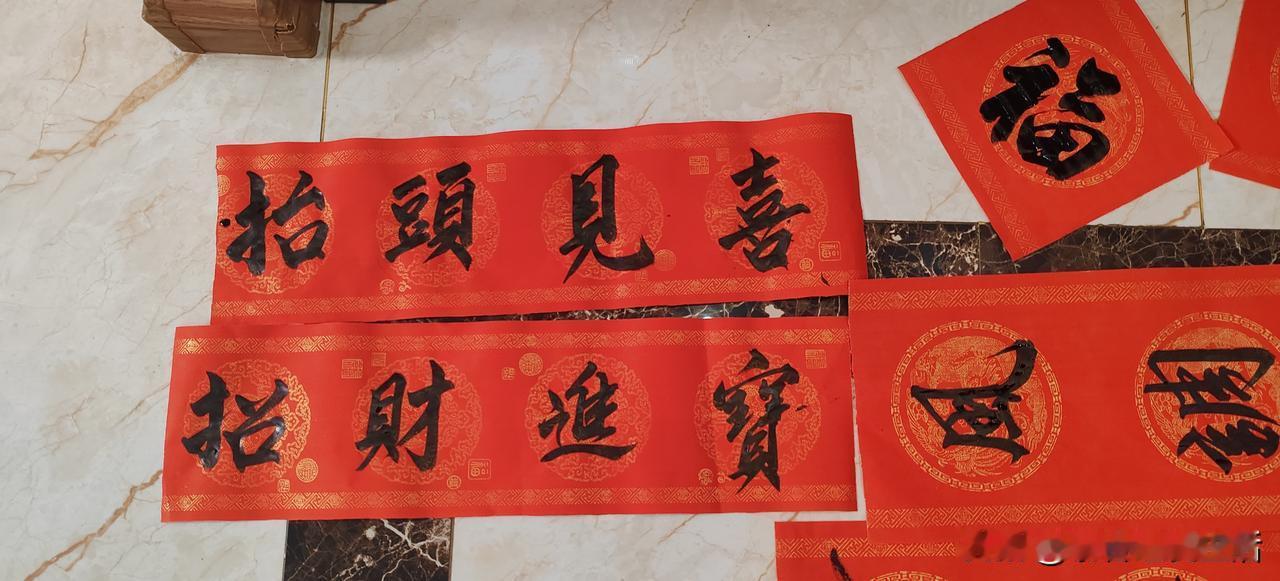 抬頭見喜
招財進寶
福
風